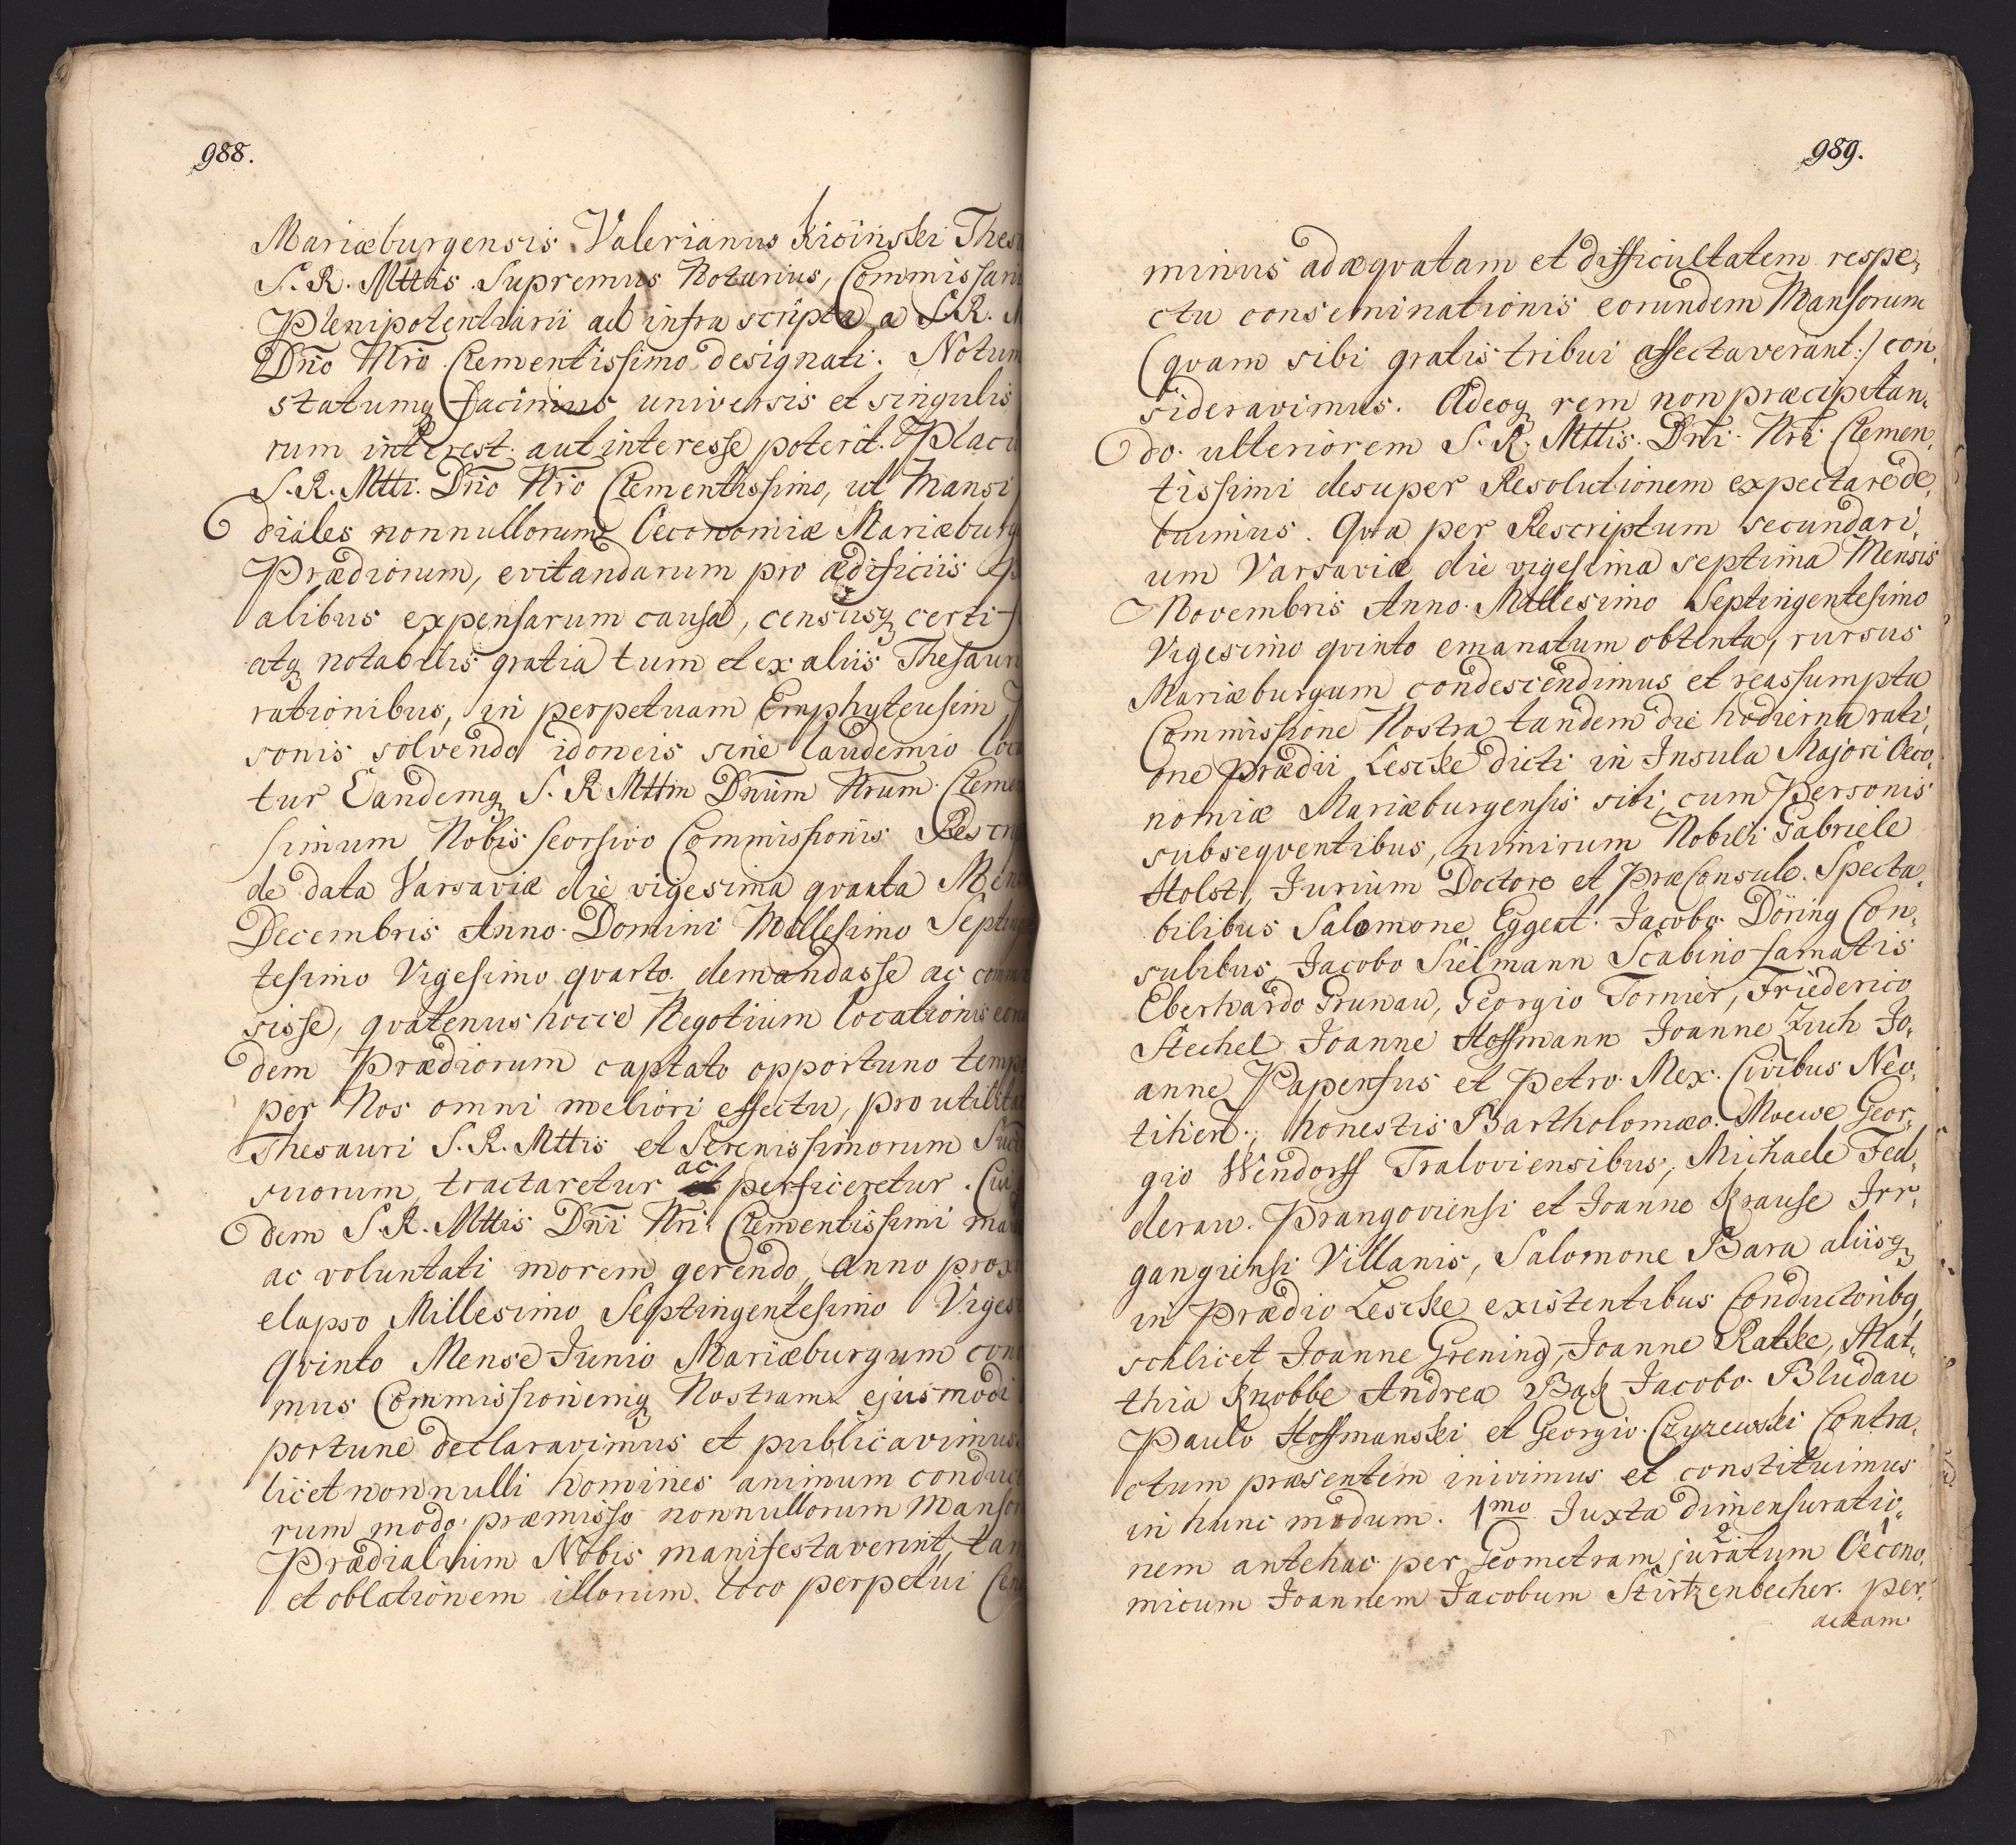 988.
Mariæburgensis Valerianus Kiciński Thes
S. R. Mttis Supremus Notarius, Commissari
Plenipotentiarii ad infra scripta a S. R. M
Dno Nro Clementissimo designati. Notum
statumq facimus universis et singulis
rum interest aut interesse poterit. Placu
S. R. Mtti. Dno Nro Clementissimo, ut Mansi
diales nonnullorum Oeconomiæ Mariæburg
Prædiorum, evitandarum pro ædificiis
alibus expensarum causa, censusq certi
atq notabilis gratia tum et ex aliis Thesauri
rationibus, in perpetuam Emphyteusim
sonis solvendo idoneis sine laudemio loca
tur Eandemq S. R. Mttm Dnum Nrum Cleme
simum Nobis seorsivo Commissionis Rescri
de data Varsaviæ die vigesima quarta Men
Decembris Anno Domini Millesimo Septing
tesimo Vigesimo qvarto demandasse ac commi
sisse, qvatenus hocce Negotium locationis eoru
dem Prædiorum captato opportuno tempo
per Nos omni meliori effectu, pro utilitat
Thesauri S. R. Mttis et Serenissimorum Succ
suorum tractaretur ac perficeretur. Cui
dem S. R. Mttis Dni Nri Clementissimi ma
ac voluntati morem gerendo, Anno prox
elapso Millesimo Septingentesimo Viges
qvinto Mense Junio Mariæburgum con
mus Commissionemq Nostram ejusmodi
portune declaravimus et publicavimus
licet nonnulli homines animum conduc
rum modo præmisso nonnullorum Manso
Prædialium Nobis manifestaverint, tam
et oblationem illorum loco perpetui Cen
989.
minus adæqvatam et difficultatem respe,
ctu conseminationis eorundem Mansorum
(qvam sibi gratis tribui affectaverant:) con,
sideravimus. Adeoq rem non præcipitan,
do ulteriorem S. R. Mttis. Dni Nri Clemen,
tissimi desuper Resolutionem expectare de,
buimus. Qva per Rescriptum secundari,
um Varsaviæ die vigesima septima Mensis
Novembris Anno Millesimo Septingentesimo
Vigesimo qvinto emanatum obtenta, rursus
Mariæburgum condescendimus et reassumpta
Commissione Nostra tandem die hodierna rati,
one Prædii Lescke dicti in Insula Majori Oeco,
nomiæ Mariæburgensis siti, cum Personis
subseqventibus, nimirum Nobili Gabriele
Holst, Jurium Doctore et PræConsule. Specta,
bilibus Salomone Eggert Jacobo Döring Con,
sulibus, Jacobo Sielmann Scabino famatis
Eberhardo Grunau, Georgio Tornier, Friederico
Stechel Joanne Hoffmann Joanne Zuch Jo,
anne Papensus et Petro Mex. Civibus Neo,
tihien., honestis Bartholomæo Moewe Geor,
gio Wendorff Traloviensibus, Michaele Fed,
derau. Prangoviensi et Joanne Krause Irr,
gangiensi Villanis, Salomone Bara aliisq
in Prædio Lescke existentibus Conductoribq
scilicet Joanne Grening, Joanne Ratke, Mat,
thia Knobbe Andrea Bąk Jacobo Bludau
Paulo Hoffmanski et Georgio Czyzewski Contra,
ctum præsentem inivimus et constituimus
in hunc modum. 1mo Juxta dimensuratio,
nem antehac per Geometram juratum Oecono,
micum Joannem Jacobum Stirtzenbecher per,
actam